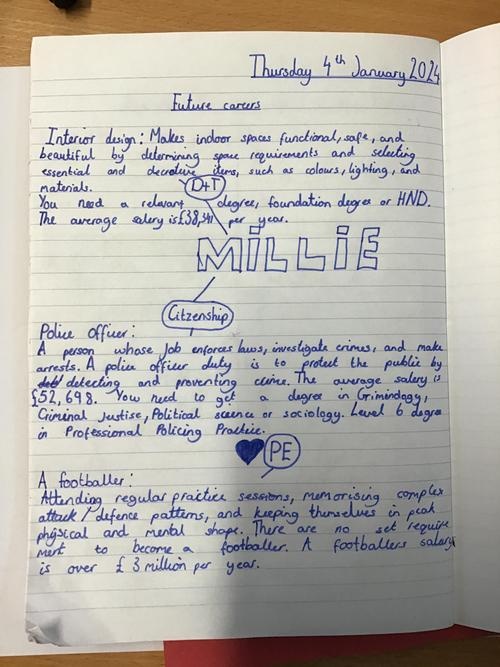 Thursday 4th January 2024
Future careers
Interior design: Makes indoor spaces functional, safe, and
beautiful by determining space requirements and selecting
essential and decrative items, such as colours, lighting, and
materials.
D+T
You need a relevant degree, foundation degree or HND.
The average salery is £38,341 per year.
MiLLiE
Citzenship
Police officer:
A person whose job enforces laws, investigate crimes, and make
arrests. A police officer duty is to protect the public by
detecting and proventing crime. The average salery is
£52,698. You need to get a degree in Criminology,
Criminal Justise, Political science or sociology. Level 6 degree
in Professional Policing Practice.
PE
A footballer:
Attending regular practice sessions, memorising complex
attack / defence patterns, and keeping themselves in peak
physical and mental shape. There are no set require
ment to become a footballer. A footballers salary
is over £ 3 million per year.